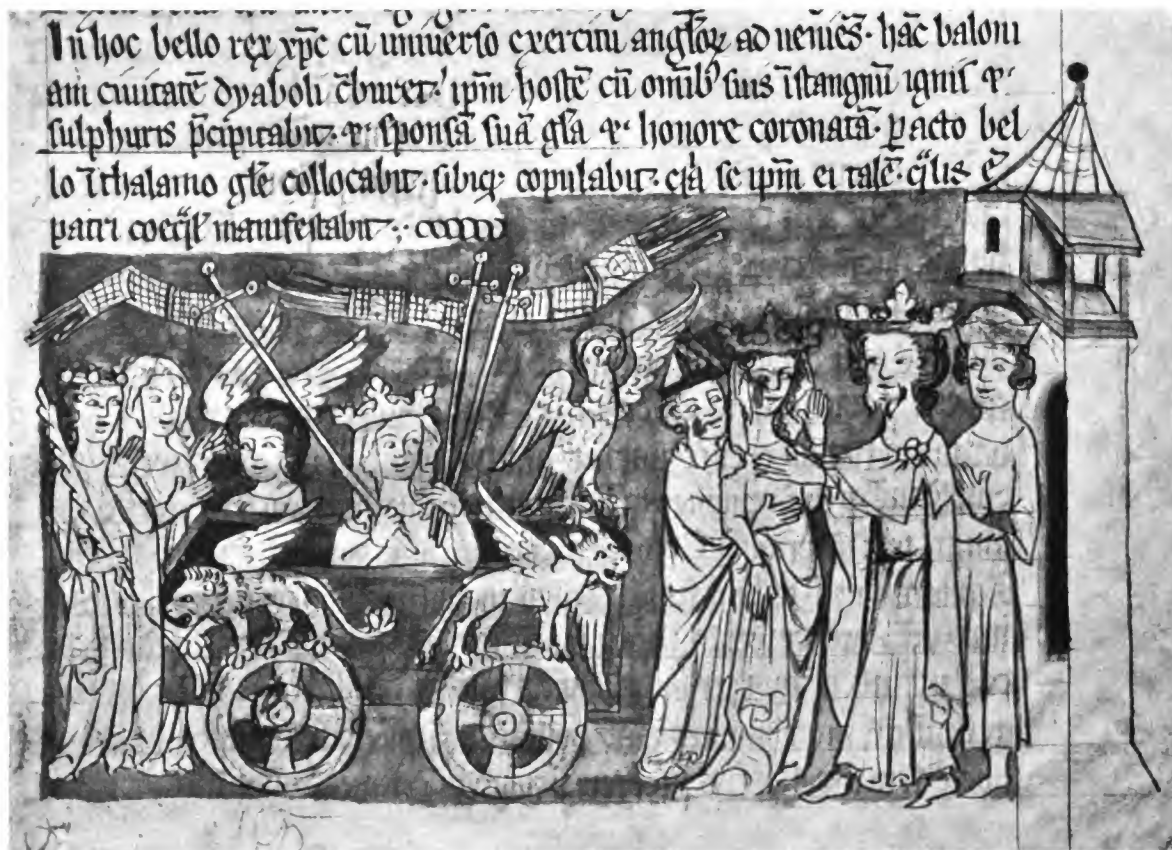 In hoc bello rex xp̄c cū uniuerso exercitu angl̄oꝝ ad ueniēs· hāc baloni
am ciuitatē dyaboli ↄ̄buret· ip̄m hostē cū om̄ib᷒ suis ī stangnū ignis ⁊·
sulphuris p̄cipitabit· ⁊· sponsā suā gl̄a ⁊· honore coronatā· ꝑacto bel
lo ī thalamo gl̄e collocabit· sibiqꝫ copulabit· se ip̄m ei talē· q̄lis ē
patri manifestabit